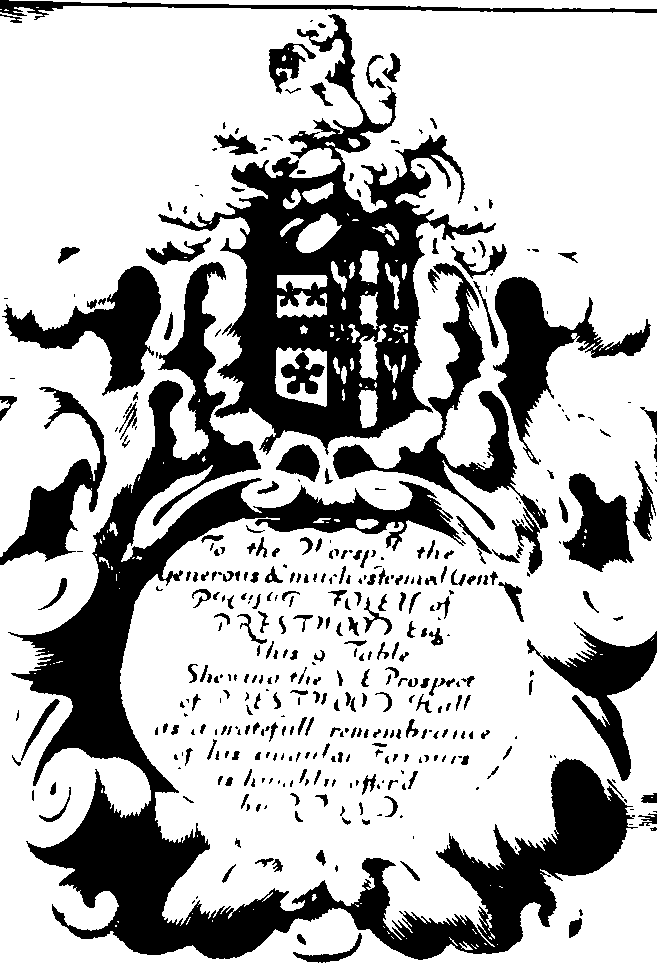 To the Worsp.ll the
Generous & much esteemed Gent.
FOLEY of
PRESTWOOD Esq.
This 9 Table
Shewing the Prospect
of PRESTWOOD Hall
as a gratefull remembrance
of his singular Favours
is humbly offer'd
by